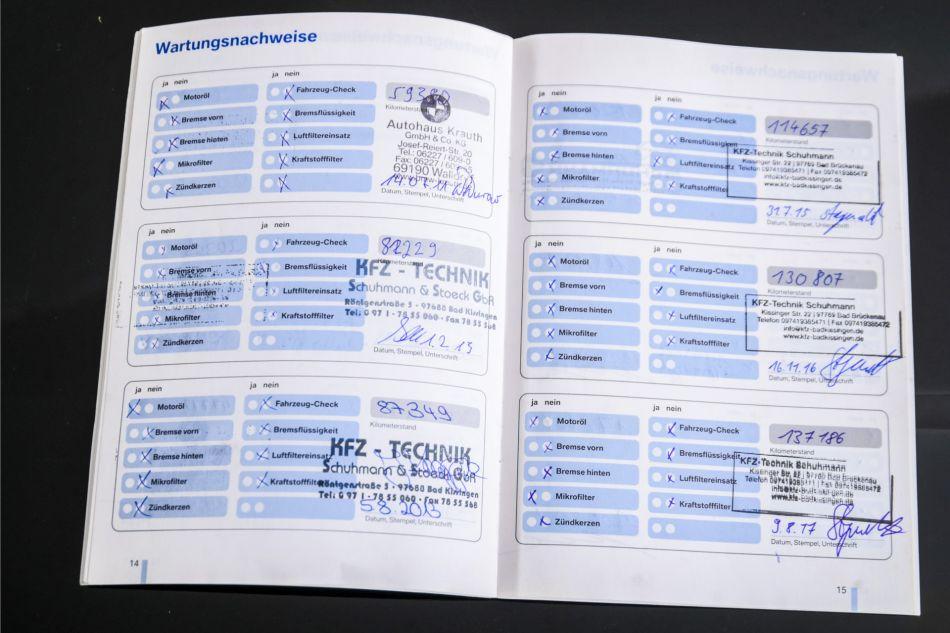 Wartungsnachweise
ja nein
ja nein
Motoröl
Fahrzeug-Check
Bremse vorn
Bremsflüssigkeit
Bremse hinten
Luftfiltereinsatz
Mikrofilter
Kraftstofffilter
Zündkerzen
Autohaus Krauth
GmbH & Co. KG
Josef-Reiert-Str. 20
Tel.: 06227 / 609-0
69190
Datum, Stempel, Unterschrift
ja nein
ja nein
Motoröl
Fahrzeug-Check
Bremse vorn
Bremsflüssigkeit
Bremse hinten
Luftfiltereinsatz
Mikrofilter
Kraftstofffilter
Zündkerzen
KFZ - TECHNIK
Schuhmann & Stoeck GbR
Röntgenstraße 5 - 97680 Bad Kissingen
Tel: 0 97 1 - 78 55 060 - Fax 78 55 568
Datum, Stempel, Unterschrift
ja nein
ja nein
Motoröl
Fahrzeug-Check
87349
Kilometerstand
Bremse vorn
Bremsflüssigkeit
Bremse hinten
Luftfiltereinsatz
Mikrofilter
Kraftstofffilter
Zündkerzen
KFZ - TECHNIK
Schuhmann & Stoeck GbR
Röntgenstraße 5 - 97680 Bad Kissingen
Tel: 0 97 1 - 78 55 060 - Fax 78 55 568
5.8.2013
Datum, Stempel, Unterschrift
14
ja nein
ja nein
Motoröl
Fahrzeug-Check
114657
Kilometerstand
Bremse vorn
Bremsflüssigkeit
Bremse hinten
Luftfiltereinsatz
Mikrofilter
Kraftstofffilter
Zündkerzen
KFZ-Technik Schuhmann
Kissinger Str. 22 | 97769 Bad Brückenau
Telefon 097419385471 | Fax 097419385472
info@kfz-badkissingen.de
www.kfz-badkissingen.de
31.7.15
Datum, Stempel, Unterschrift
ja nein
ja nein
Motoröl
Fahrzeug-Check
130 807
Kilometerstand
Bremse vorn
Bremsflüssigkeit
Bremse hinten
Luftfiltereinsatz
Mikrofilter
Kraftstofffilter
Zündkerzen
KFZ-Technik Schuhmann
Kissinger Str. 22 | 97769 Bad Brückenau
Telefon 097419385471 | Fax 097419385472
info@kfz-badkissingen.de
www.kfz-badkissingen.de
16.11.16
Datum, Stempel, Unterschrift
ja nein
ja nein
Motoröl
Fahrzeug-Check
137186
Kilometerstand
Bremse vorn
Bremsflüssigkeit
Bremse hinten
Luftfiltereinsatz
Mikrofilter
Kraftstofffilter
Zündkerzen
KFZ-Technik Schuhmann
9.8.17
Datum, Stempel, Unterschrift
15